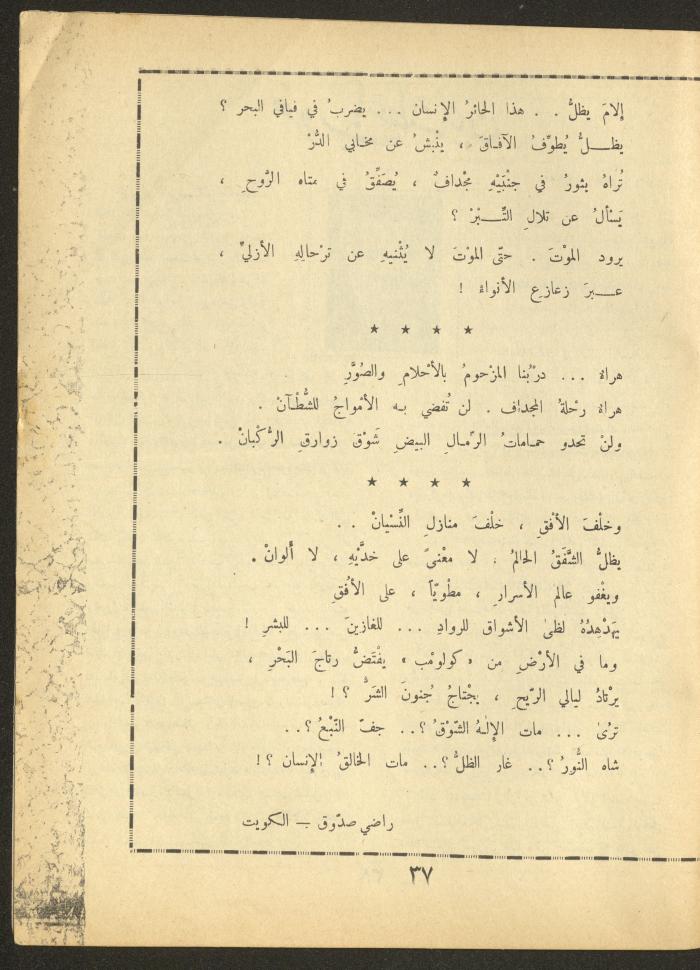 إلامَ يظلُّ . . هذا الحائرُ الإنسان ... يضربُ في فيافي البحر ؟
يظـــلُّ يُطوِّفُ الآفـاقَ ، ينْبشُ عن مخـابي الدُّرْ
تُراهُ يثورُ في جنْبَيْهِ مجْدافٌ ، يُصَفِّقُ في متاه الرّوحِ ،
يَسْألُ عن تلالِ التِّـــبْرْ ؟
يرود الموْتَ . حتّى الموْتَ لا يُثْنيهِ عن ترْحالِهِ الأزليِّ ،
عـــبرَ زعازعِ الأنواءْ !
★ ★ ★ ★
هراءْ ... درْبُنا المزْحومُ بالأحْلامِ والصُوَرِ
هراءْ رحْلةُ المجداف . لن تُفضي بـه الأمْواجُ للشُّطْـآنْ .
ولنْ تحدو حمـاماتُ الرّمـالِ البيضِ شَوْقَ زوارقِ الرُّكْبانْ .
★ ★ ★ ★
وخلْفَ الأفْقِ ، خلْفَ منازلِ النِّسْيانْ ..
يظلُّ الشّفَقُ الحالمُ ، لا معْنىً على خدَّيْهِ ، لا ألْوانْ .
ويغْفو عالم الأسرارِ ، مطْويّاً ، على الأفُقِ
يهَدْهِدُهُ لظىٰ الأشواق للروادِ ... للغازينَ ... للبشرِ !
وما في الأرْضِ من «كولومْب» يفْتَضُّ رتاجَ البَحْرِ ،
يرْتادُ ليالي الرّيحِ ، يجْتاحُ جُنونَ الشرِّ ؟ !
تُرىٰ ... مات الإلـهُ الشّوْقُ ؟.. جفّ النّبْعُ ؟..
شاه النُّورُ ؟.. غار الظلُّ ؟.. مات الخالقُ الإنسان ؟ !
راضي صدّوق — الكويت
٣٧